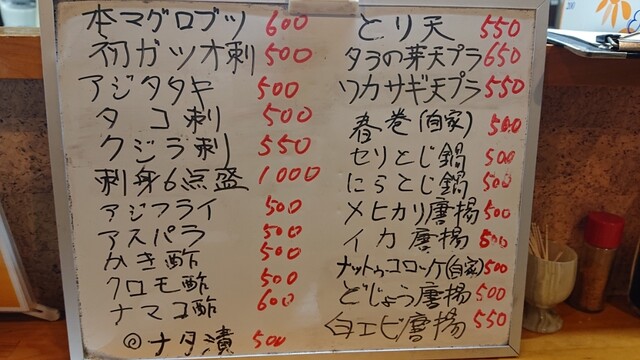 本マグロブツ 600
初ガツオ刺 500
アジタタキ 500
タコ刺 500
クジラ刺 550
刺身6点盛 1000
アジフライ 500
アスパラ 500
かき酢 500
クロモ酢 500
ナマコ酢 600
◎ナタ漬 500
とり天 550
タラの芽天プラ 650
ワカサギ天プラ 550
春巻(自家) 500
セリとじ鍋 500
にらとじ鍋 500
メヒカリ唐揚 500
イカ唐揚 500
ナットウコロッケ(自家) 500
どじょう唐揚 500
白エビ唐揚 550